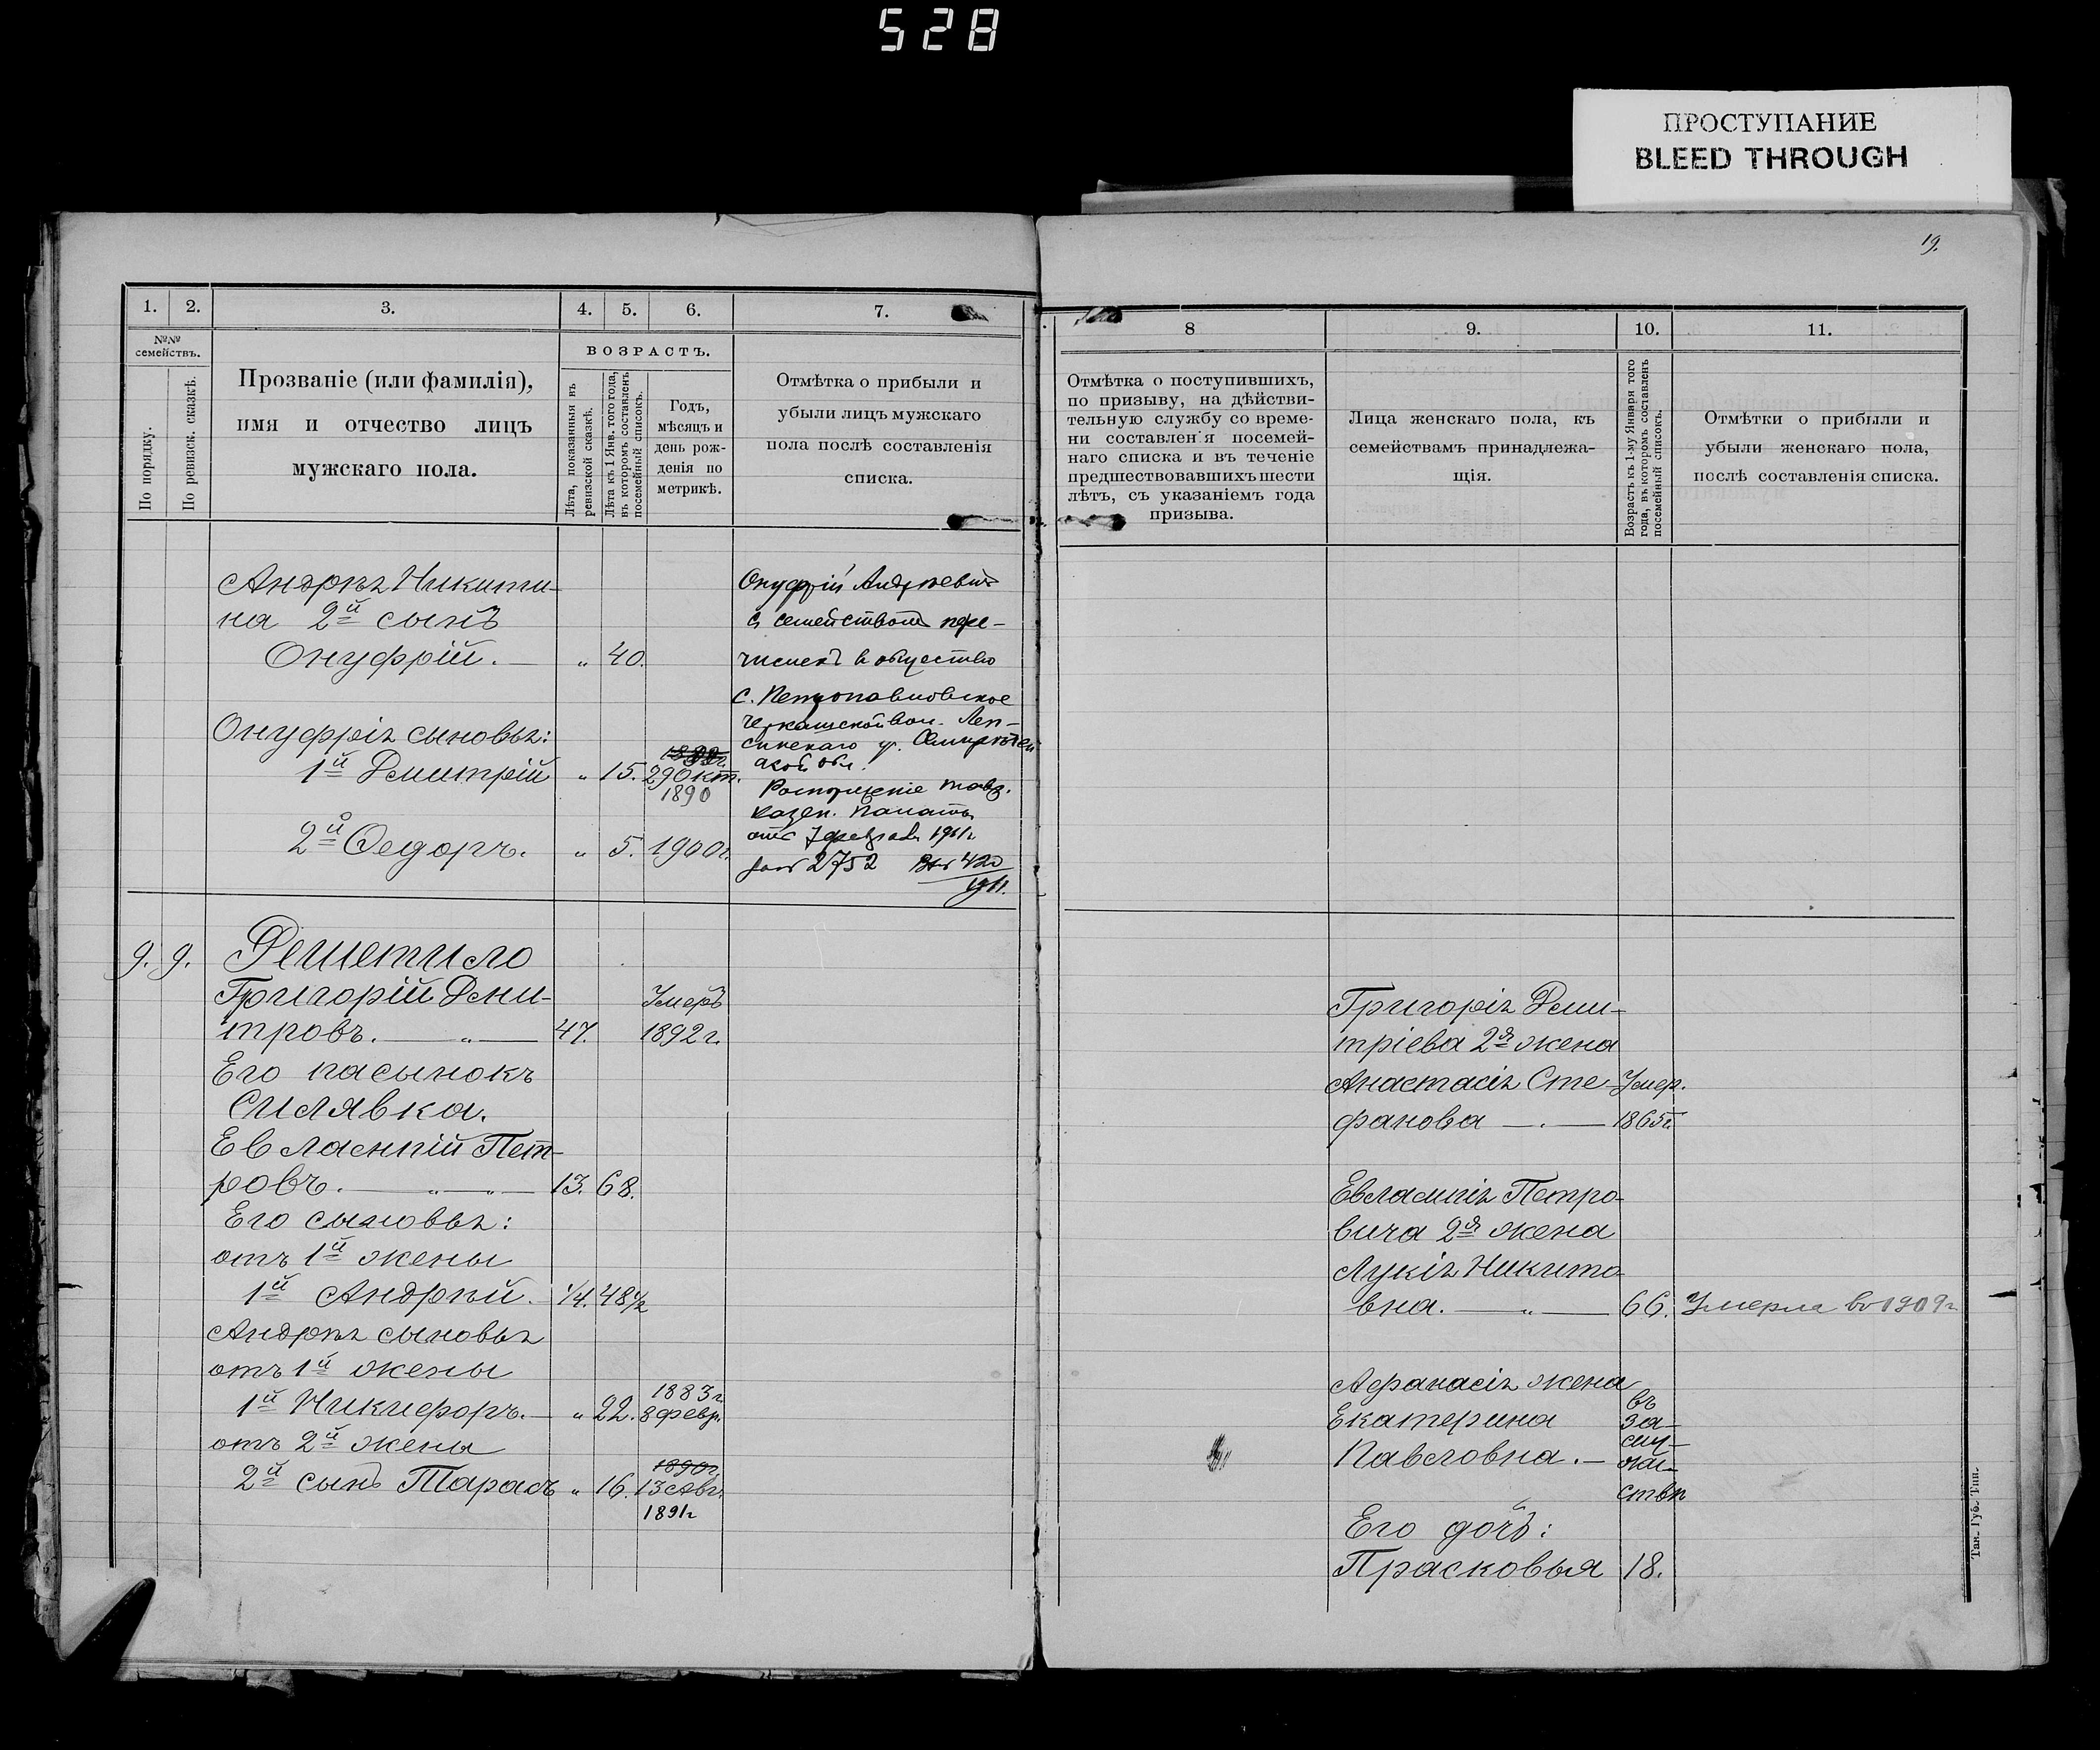 528
ПРОСТУПАНИЕ
BLEED THROUGH
19.
1.
2.
3.
4.
5.
6.
7.
№№ семействъ.
По порядку.
По ревизск. сказкѣ.
Прозваніе (или фамилія),
имя и отчество лицъ
мужскаго пола.
ВОЗРАСТЪ.
Лѣта, показанныя въ
ревизской сказкѣ.
Лѣта къ 1 Янв. того года,
въ которомъ составленъ
посемейный списокъ.
Годъ,
мѣсяцъ и
день рож-
денія по
метрикѣ.
Отмѣтка о прибыли и
убыли лицъ мужскаго
пола послѣ составленія
списка.
Андрѣя Никити-
на 2й сынъ
Онуфрій. „ 40.
Онуфрія сыновья:
1й Дмитрій „ 15. 29 Окт.
1890
2й Ѳедоръ. „ 5. 1900г.
Онуфрій Андреевичъ
съ семействомъ пере-
численъ в общество
с. Петропавловское
Черкасской вол. Леп-
синскаго у. Семиречен
ской обл.
Распоряженіе Тавр.
казен. палаты
отъ 7 февраля 1911г
за № 2752 Вх № 420
1911.
9. 9. Решетило
Григорій Дми- Умеръ
тровъ. „ 47. 1892 г.
Его пасынокъ
Силявка.
Евлампій Пет-
ровъ. „ „ 13. 68.
Его сыновья:
отъ 1й жены
1й Андрѣй. 1/4. 48 1/2
Андрѣя сыновья
отъ 1й жены 1883г.
1й Никифоръ. „ 22. 8 февр.
отъ 2й жены 1890г.
2й сынъ Тарасъ „ 16. 13 Авг.
1891г
8
9.
10.
11.
Отмѣтка о поступившихъ,
по призыву, на дѣйстви-
тельную службу со време-
ни составленія посемей-
наго списка и въ теченіе
предшествовавшихъ шести
лѣтъ, съ указаніемъ года
призыва.
Лица женскаго пола, къ
семействамъ принадлежа-
щія.
Возрастъ къ 1-му Января того
года, въ которомъ составленъ
посемейный списокъ.
Отмѣтки о прибыли и
убыли женскаго пола,
послѣ составленія списка.
Григорія Дми-
тріева 2я жена
Анастасія Сте- Умер.
фанова 1865г.
Евлампія Петро-
вича 2я жена
Лукія Никито-
вна. „ 66. Умерла въ 1909г
Афанасія жена
Екатерина
Павловна.
въ
за-
му-
же-
ствѣ
Его дочь:
Прасковья 18.
Тав. Губ. Тип.